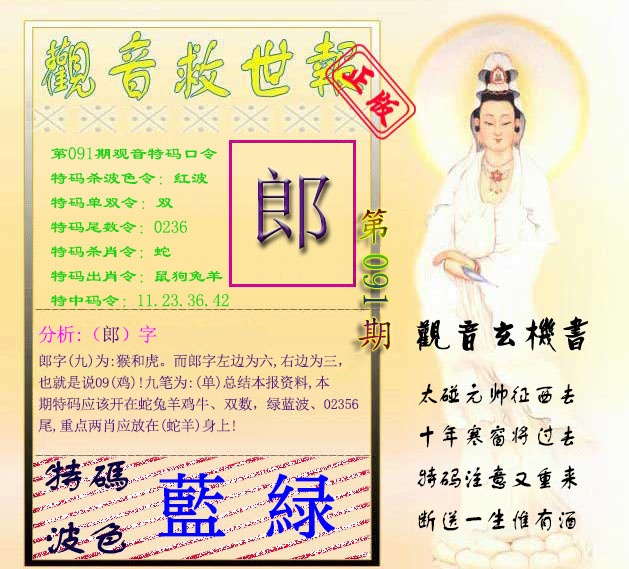 觀音救世報
正版
第091期观音特码口令
特码杀波色令：红波
特码单双令：双
特码尾数令：0236
特码杀肖令：蛇
特码出肖令：鼠狗兔羊
特中码令：11.23.36.42
郎
第091期
分析:（郎）字
郎字(九)为:猴和虎。而郎字左边为六,右边为三，
也就是说09(鸡)!九笔为:(单)总结本报资料,本
期特码应该开在蛇兔羊鸡牛、双数，绿蓝波、02356
尾,重点两肖应放在(蛇羊)身上!
特碼
波色
藍 緑
觀音玄機書
太碰元帅征西去
十年寒窗将过去
特码注意又重来
断送一生惟有酒